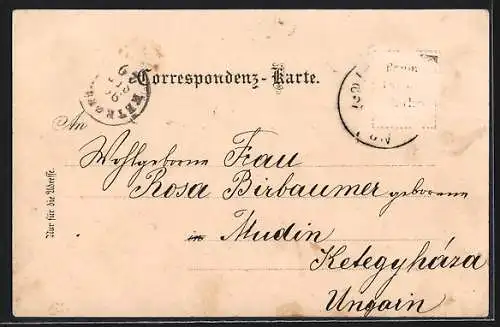 Correspondenz-Karte.
An
Wohlgeborne Frau
Rosa Birbaumer geborene
in Mudin
Ketegyháza
Ungarn
Nur für die Adresse